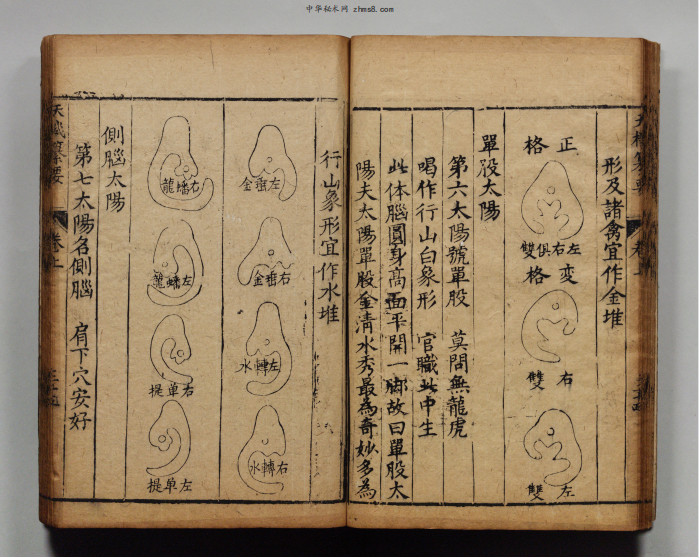 中华秘术网 zhms8.com
形及諸禽宜作金堆
正格
左右俱雙
変格
右雙
左雙
單股太陽
第六太陽號單股 莫問無龍虎
喝作行山白象形 官職此中生
此体腦圓身高面平開一脚故曰單股太
陽夫太陽單股金清水秀最為奇妙多為
行山象形宜作水堆
左垂金
右垂金
左轉水
右轉水
右蟠龍
左蟠龍
右单提
左单提
側腦太陽
第七太陽名側腦 肩下穴安好
天機纂要 卷上